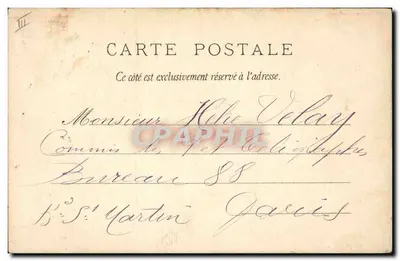 III
CARTE POSTALE
Ce côté est exclusivement réservé à l'adresse.
Monsieur Velay
Commis des
Bureau 88
Bd St Martin Paris
CPAPHIL